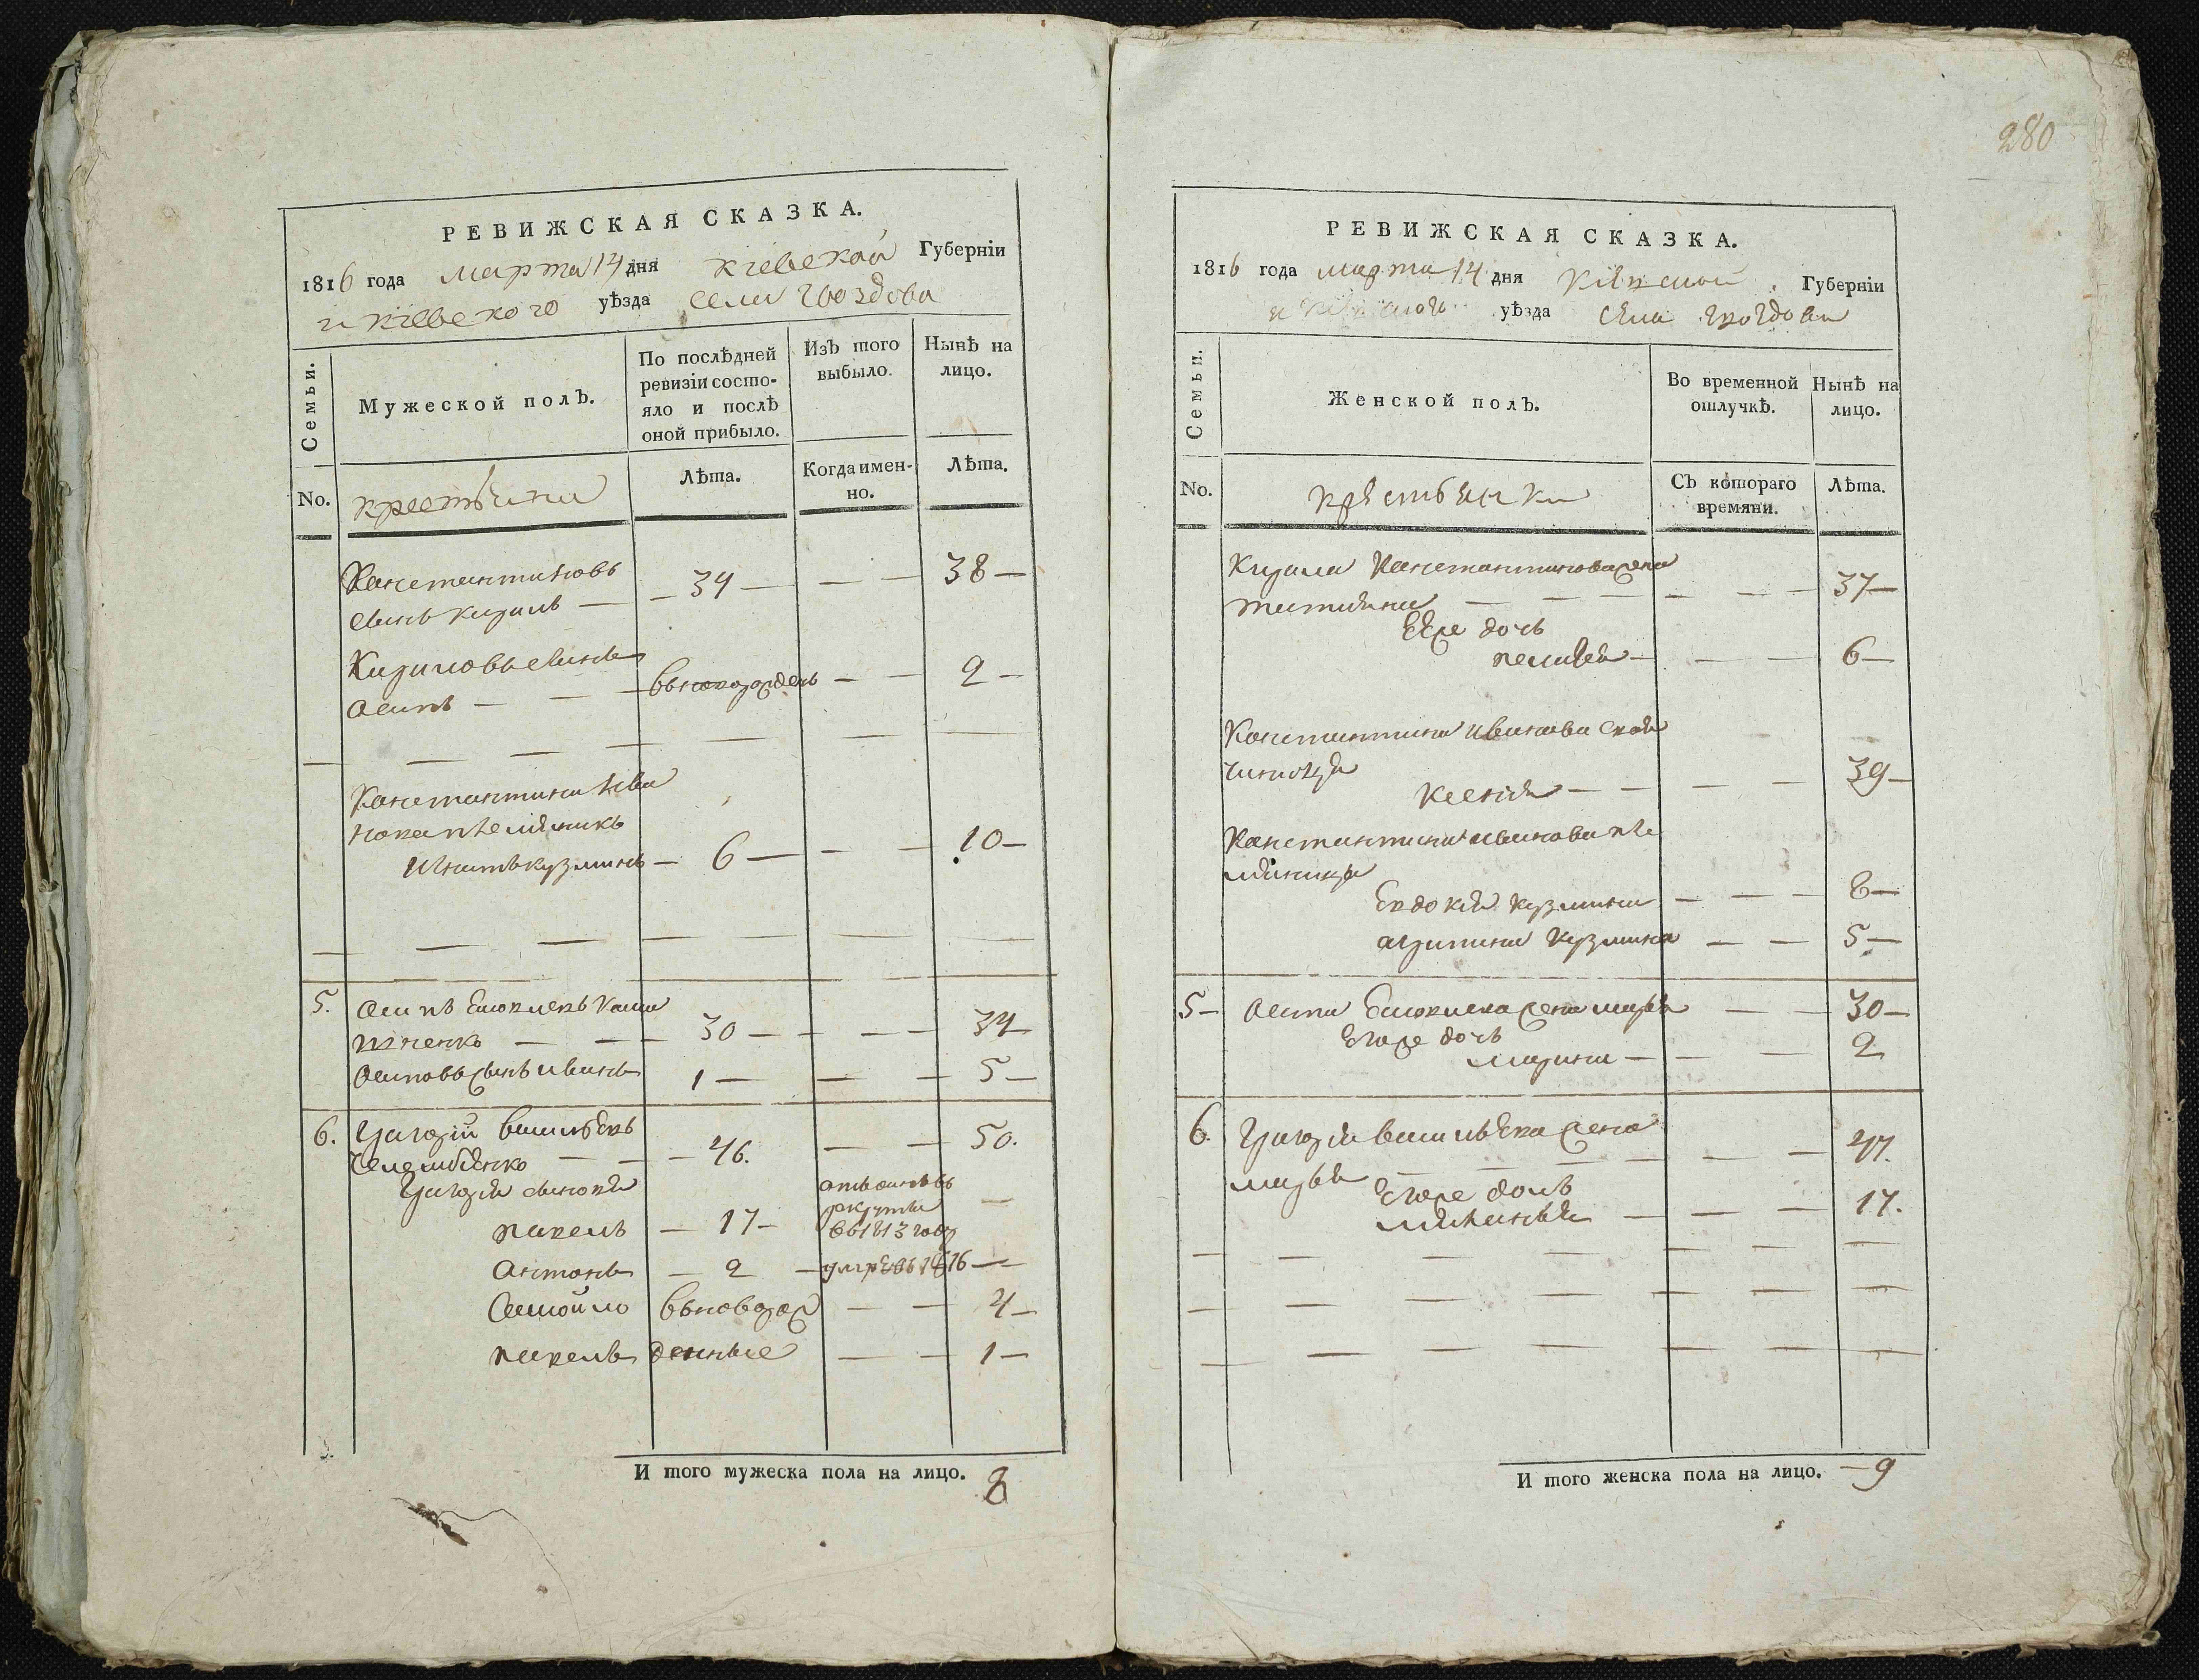 РЕВИЖСКАЯ СКАЗКА.
1816 года марта 14 дня Кіевской Губерніи
и Кіевского уѣзда села Гвоздова
Семьи.
Мужеской полЪ.
По послѣдней ревизіи состояло и послѣ оной прибыло.
ИзЪ того выбыло.
Нынѣ на лицо.
No.
крестьяни
Лѣта.
Когда именно.
Лѣта.
Константиновъ
сынъ кирилъ — 34 — — — 38 —
Кириловъ сынъ
Осипъ — — вьноворожденъ — — 2 —
Константина Ива
нова племяникъ
Игнатъ кузминъ — 6 — — — 10 —
5. Осипъ
— — 30 — — — 34
Осиповъ сынъ иванъ 1 — — — 5 —
6. Григорій василѣвъ
— — 46. — — 50.
Григорія сыновя
павелъ — 17 — въ 1813 году —
Антонъ — 2 — умре въ 1816 —
Самойло вьноворож — — 4 —
павелъ денные — — 1 —
И того мужеска пола на лицо. 8
280
РЕВИЖСКАЯ СКАЗКА.
1816 года марта 14 дня Кіевской Губерніи
и Кіевского уѣзда села Гвоздова
Семьи.
Женской полЪ.
Во временной отлучкѣ.
Нынѣ на лицо.
No.
крестьянки
СЪ котораго времяни.
Лѣта.
Кирила Константинова жена
татияна — — — — — — 37 —
Его же дочь
пелагея — — — 6 —
Константина Иванова
Ксения — — — — 39 —
Константина иванова пле
мяница
Евдокия кузмина — — — 8 —
агрипина кузмина — — 5 —
5 — Осипа жена марья — — 30 —
Его же дочь
марина — — — 2
6. Григория василѣва жена
марья — — — — — — 47.
Его же дочь
маланья — — — 17.
И того женска пола на лицо. — 9